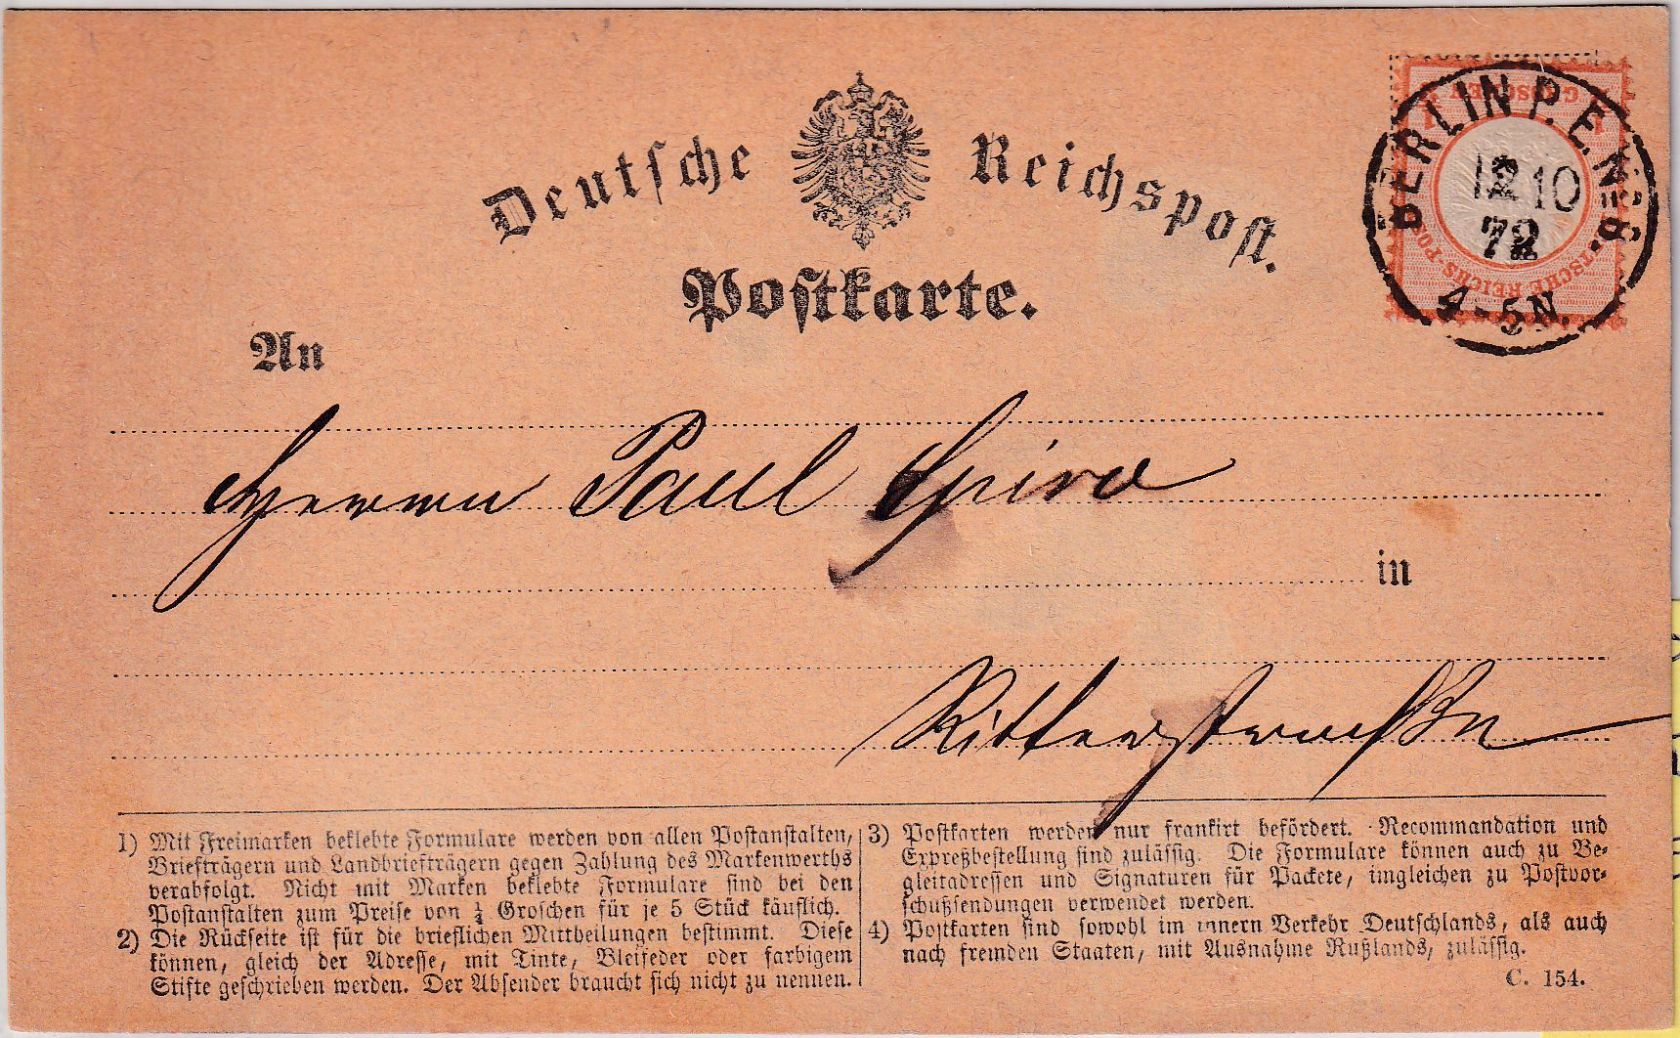 Deutsche Reichspost.
Postkarte.
BERLIN P.E. Nº 8.
12 10
72
4-5N.
1
GROSCHEN
1
DEUTSCHE REICHS-POST
An
Herrn Paul Spiro
in
Ritterstraße
1) Mit Freimarken beklebte Formulare werden von allen Postanstalten,
Briefträgern und Landbriefträgern gegen Zahlung des Markenwerths
verabfolgt. Nicht mit Marken beklebte Formulare sind bei den
Postanstalten zum Preise von ¼ Groschen für je 5 Stück käuflich.
2) Die Rückseite ist für die brieflichen Mittheilungen bestimmt. Diese
können, gleich der Adresse, mit Tinte, Bleifeder oder farbigem
Stifte geschrieben werden. Der Absender braucht sich nicht zu nennen.
3) Postkarten werden nur frankirt befördert. Recommandation und
Expreßbestellung sind zulässig. Die Formulare können auch zu Be-
gleitadressen und Signaturen für Packete, imgleichen zu Postvor-
schußsendungen verwendet werden.
4) Postkarten sind sowohl im innern Verkehr Deutschlands, als auch
nach fremden Staaten, mit Ausnahme Rußlands, zulässig.
C. 154.